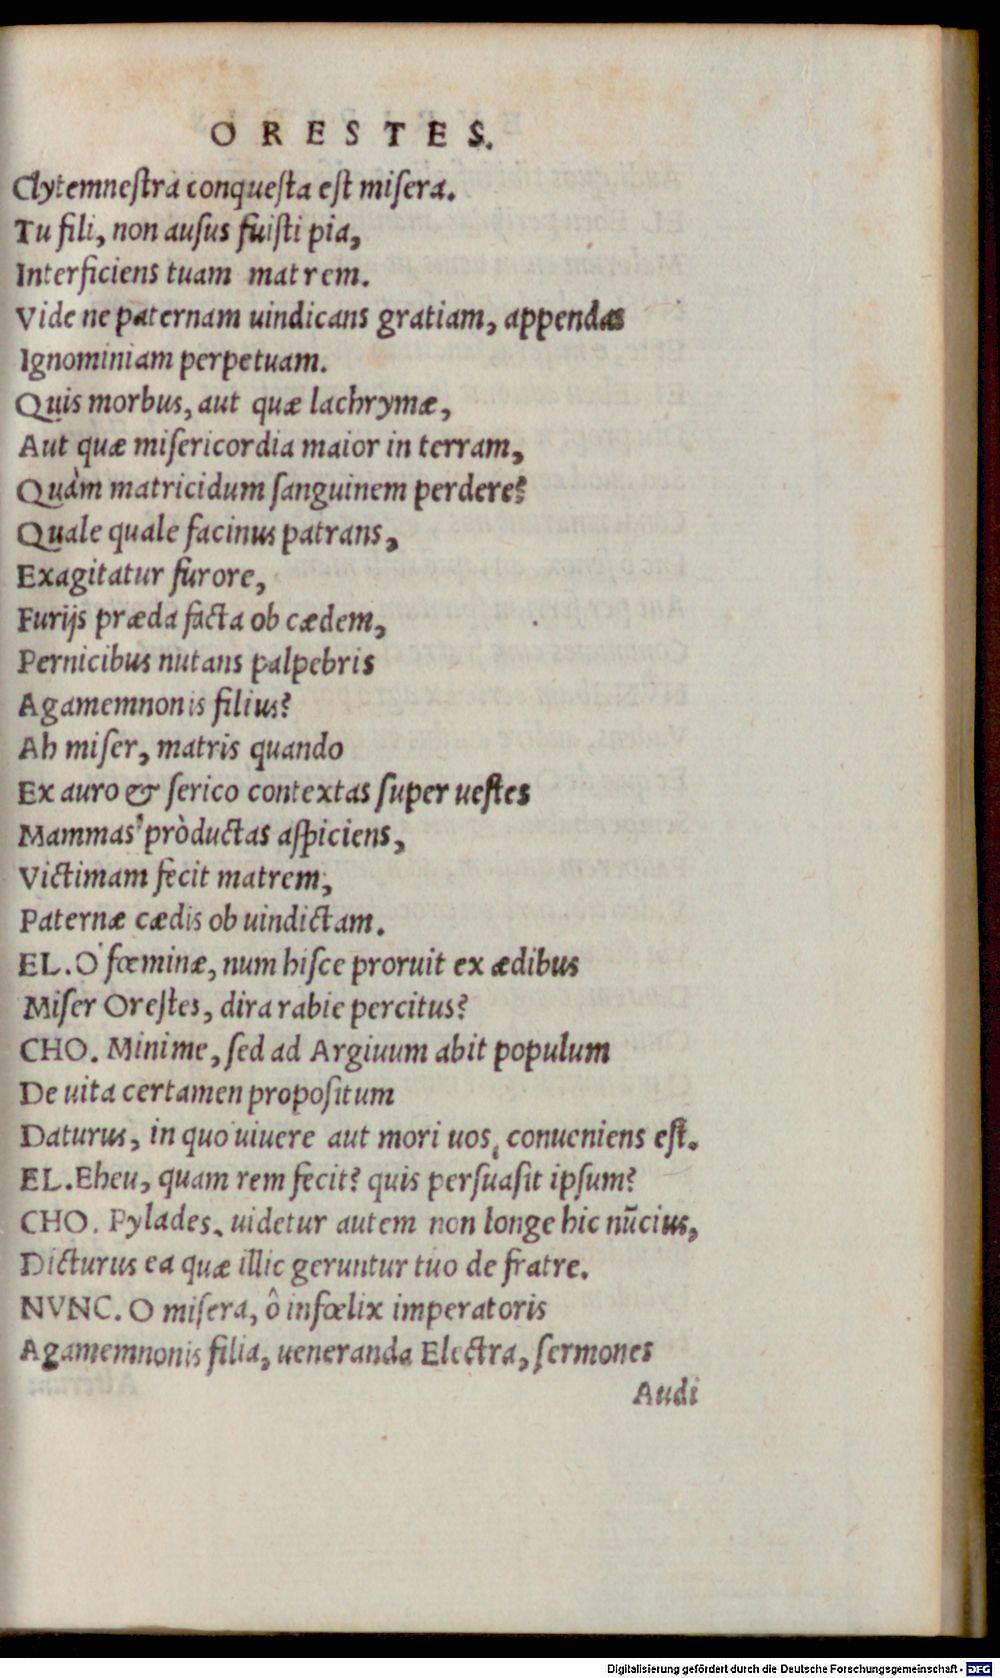 ORESTES.
Clytemnestra conquesta est misera.
Tu fili, non ausus fuisti pia,
Interficiens tuam matrem.
Vide ne paternam uindicans gratiam, appendas
Ignominiam perpetuam.
Quis morbus, aut quæ lachrymæ,
Aut quæ misericordia maior in terram,
Quàm matricidum sanguinem perdere?
Quale quale facinus patrans,
Exagitatur furore,
Furijs præda facta ob cædem,
Pernicibus nutans palpebris
Agamemnonis filius?
Ah miser, matris quando
Ex auro & serico contextas super uestes
Mammas pròductas aspiciens,
Victimam fecit matrem,
Paternæ cædis ob uindictam.
EL. O fœminæ, num hisce proruit ex ædibus
Miser Orestes, dira rabie percitus?
CHO. Minime, sed ad Argiuum abit populum
De uita certamen propositum
Daturus, in quo uiuere aut mori uos, conueniens est.
EL. Eheu, quam rem fecit? quis persuasit ipsum?
CHO. Pylades. uidetur autem non longe hic nūcius,
Dicturus ea quæ illic geruntur tuo de fratre.
NVNC. O misera, ô infœlix imperatoris
Agamemnonis filia, ueneranda Electra, sermones
Audi
Digitalisierung gefördert durch die Deutsche Forschungsgemeinschaft - DFG